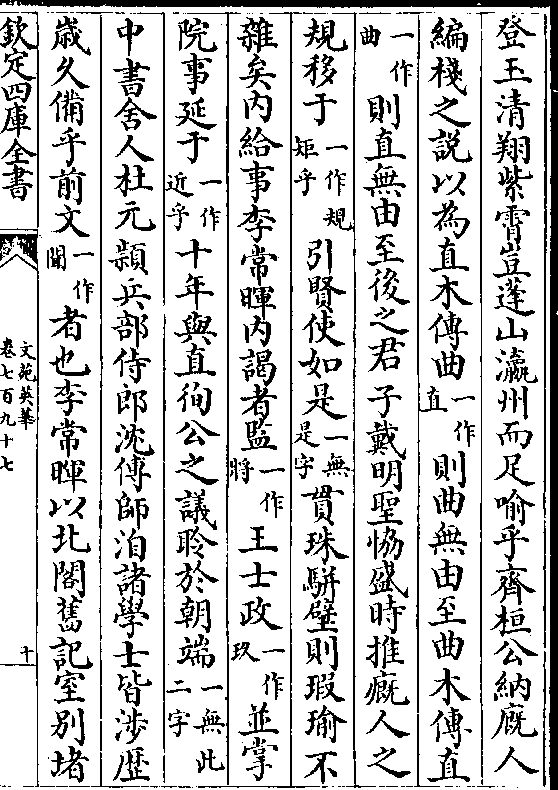 登玉清翔紫霄豈蓬山瀛州而足喻乎齊桓公納廐人
編棧之說以為直木傳曲一作直則曲無由至曲木傳直
一作曲則直無由至後之君子戴明聖恊盛時推廐人之
規移于一作規矩乎引賢使如是一無是字貫珠駢璧則瑕瑜不
雜矣内給事李常暉内謁者監一作將王士政一作玖並掌
院事延于一作近乎十年與直徇公之議聆於朝端一無此二字
中書舍人杜元頴兵部侍郎沈傳師洎諸學士皆涉歴
歳久備乎前文一作聞者也李常暉以北閣舊記室别堵
欽定四庫全書
文苑英華
卷七百九十七
十